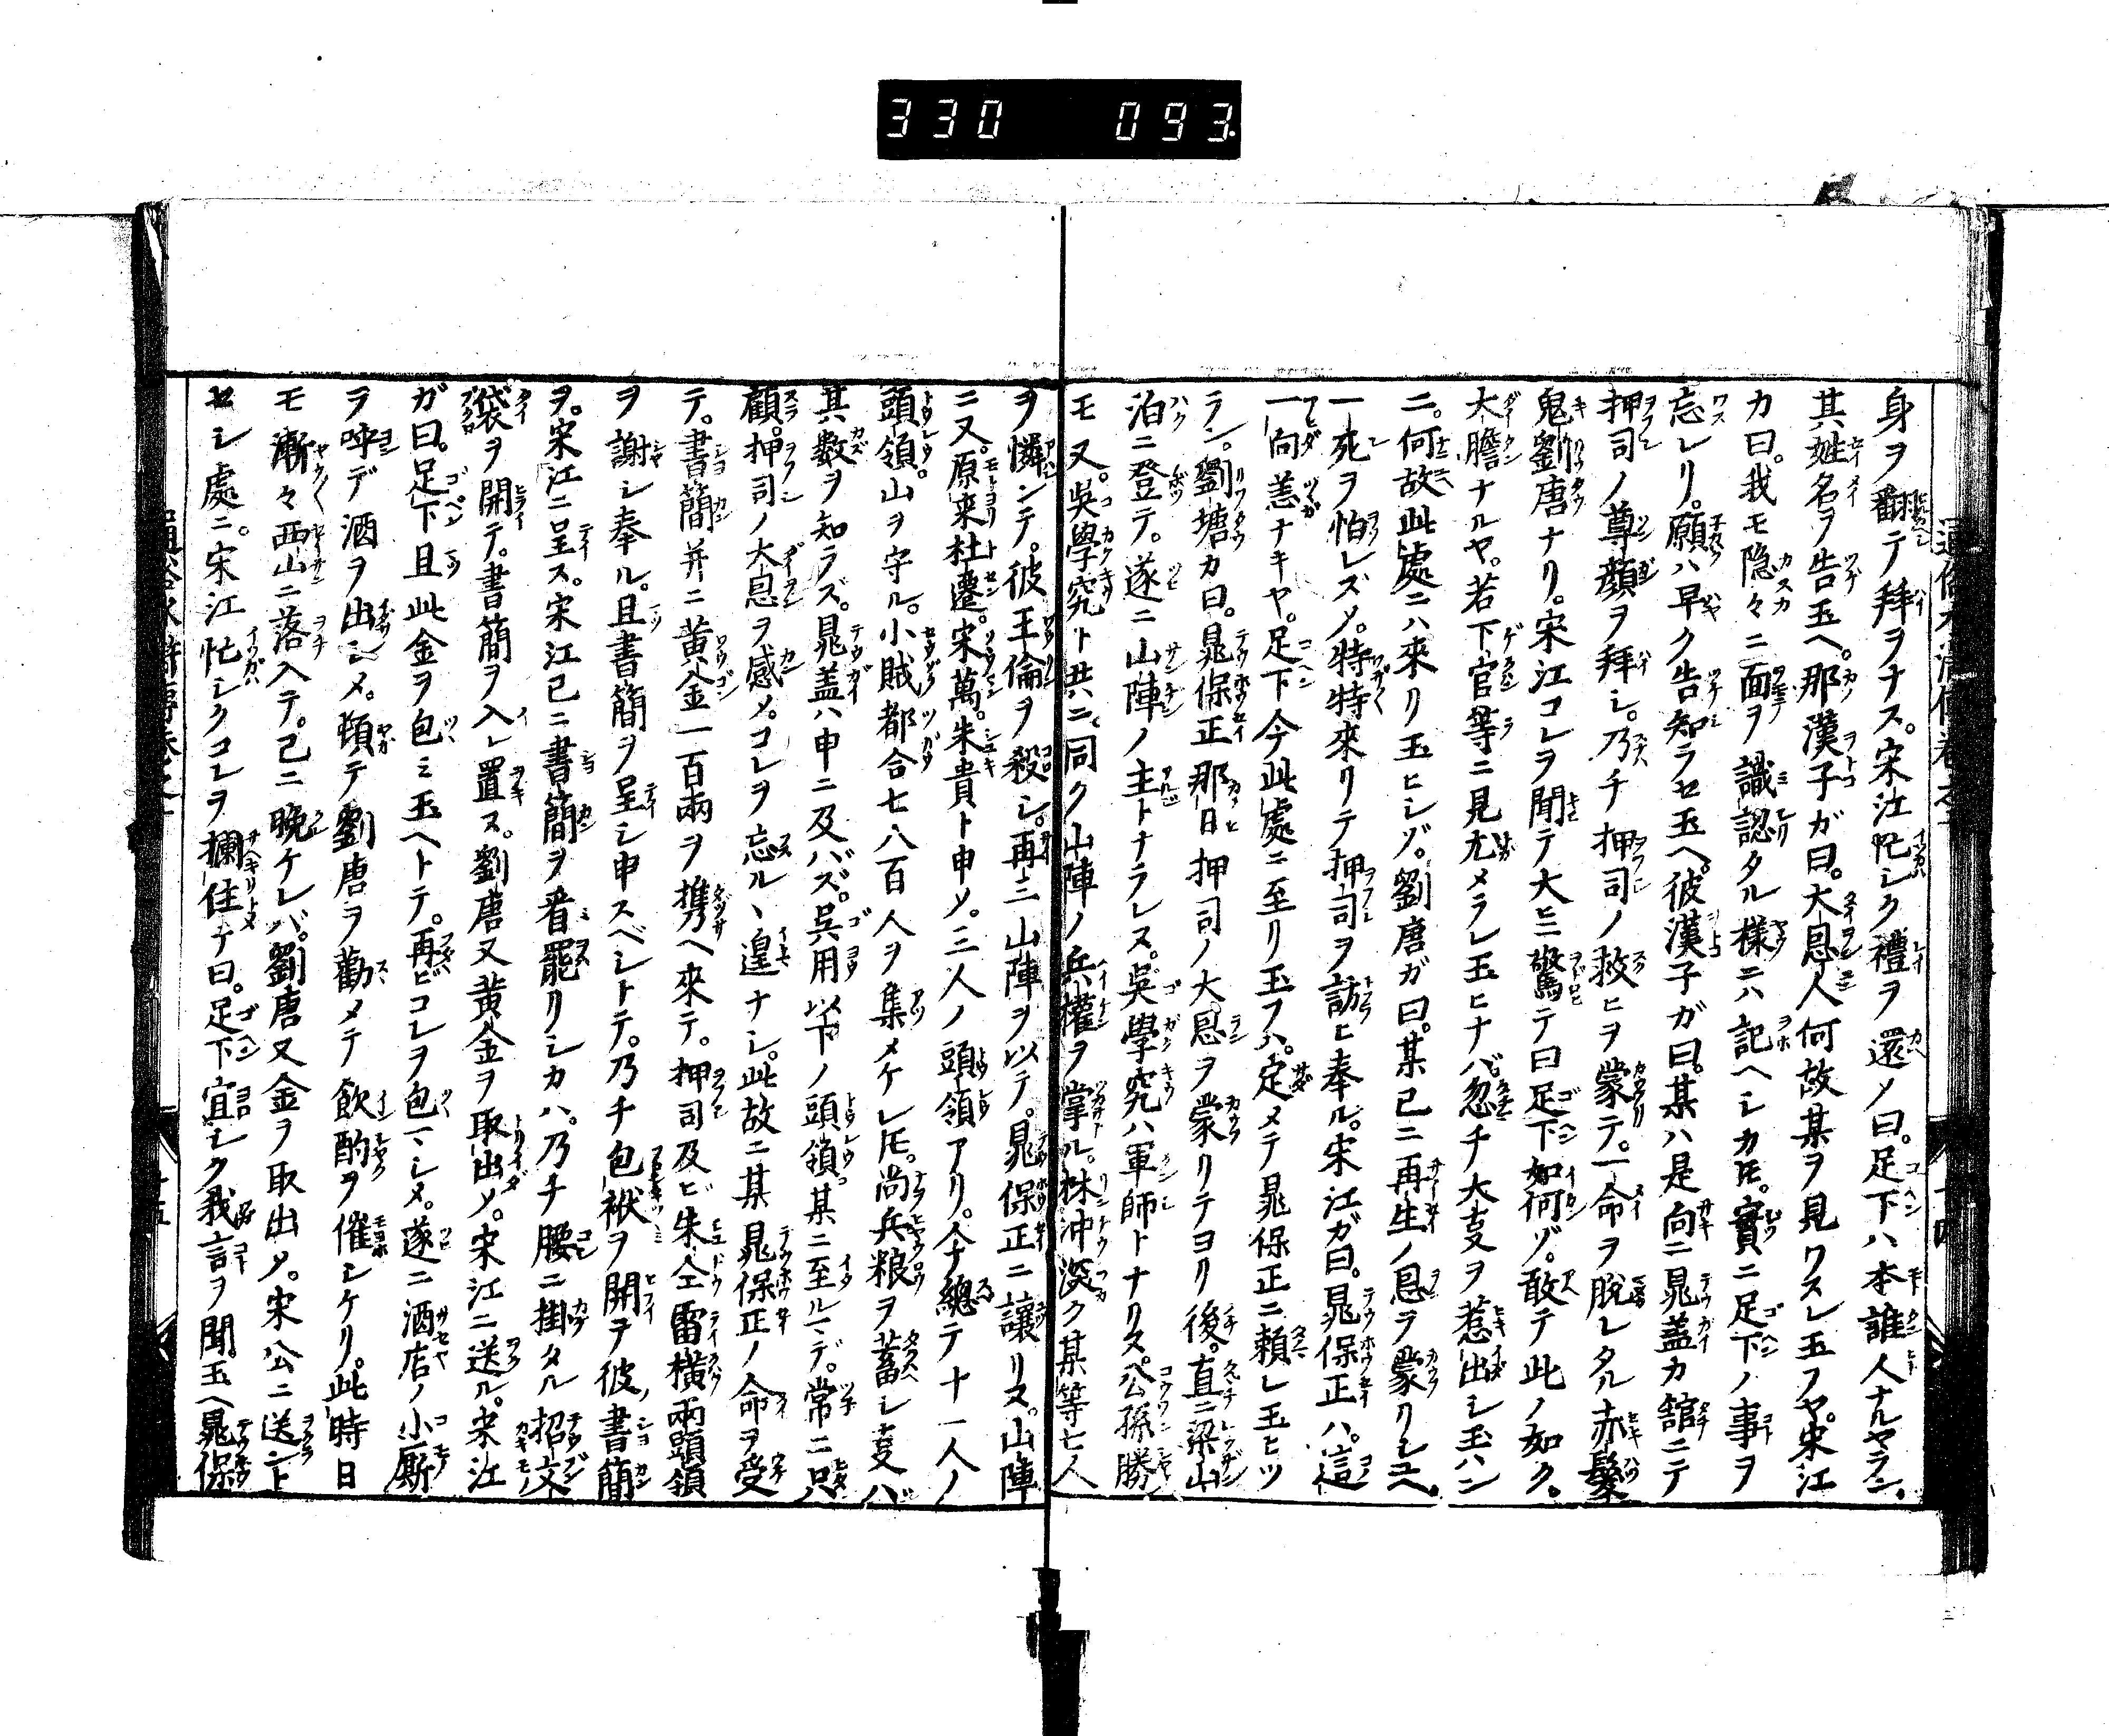 330 093.
身ヲ翻テ拜ヲナス。宋江忙シク禮ヲ還メ曰。足下ハ本誰人ナルヤラン。
其姓名ヲ告玉ヘ。那漢子ガ曰。大恩人何故某ヲ見ワスレ玉フヤ。宋江
カ曰。我モ隐々ニ面ヲ識認タル様ニハ記ヘシカ𪜈。實ニ足下ノ事ヲ
忘レリ。願ハ早ク告知ラセ玉ヘ。彼漢子ガ曰。某ハ是向ニ晁盖カ舘ニテ
押司ノ尊顔ヲ拜シ。乃チ押司ノ救ヒヲ蒙テ。一命ヲ脱レタル赤髪
鬼劉唐ナリ。宋江コレヲ聞テ大ニ驚テ曰足下如何ゾ。敢テ此ノ如ク。
大膽ナルヤ。若下官等ニ見尤メラレ玉ヒナバ。忽チ大支ヲ惹出シ玉ハン
ニ。何故此處ニハ來リ玉ヒシゾ。劉唐ガ曰。某已ニ再生ノ恩ヲ蒙リシユヘ。
一死ヲ怕レズメ。特特來リテ押司ヲ訪ヒ奉ル。宋江ガ曰。晁保正ハ。這
一向恙ナキヤ。足下今此處ニ至リ玉フハ。定メテ晁保正ニ頼レ玉ヒツ
ラン。劉塘カ曰。晁保正那日押司ノ大恩ヲ蒙リテヨリ後。直ニ梁山
泊ニ登テ。遂ニ山陣ノ主トナラレヌ。吳學究ハ軍師トナリヌ。公孫勝
モ又。吳學究ト共ニ。同ク山陣ノ兵權ヲ掌ル。林沖深ク某等七人
ヲ憐ンテ。彼王倫ヲ殺シ。再三山陣ヲ以テ。晁保正ニ讓リヌ。山陣
ニ又。原来杜遷。宋萬。朱貴ト申メ。三人ノ頭領アリ。今總テ十一人ノ
頭領。山ヲ守ル。小賊都合七八百人ヲ集メケレ𪜈。尚兵粮ヲ蓄シ支ハ
其数ヲ知ラズ。晁盖ハ申ニ及バズ。呉用以下ノ頭領。某ニ至ルマデ。常ニ只
顧。押司ノ大恩ヲ感メ。コレヲ忘ルヽ遑ナシ。此故ニ某晁保正ノ命ヲ受
テ。書簡并ニ黄金一百兩ヲ携ヘ來テ。押司及ビ朱仝雷横兩頭領
ヲ謝シ奉ル。且書簡ヲ呈シ申スベシトテ。乃チ包袱ヲ開ヲ彼書簡
ヲ。宋江ニ呈ス。宋江已ニ書簡ヲ看罷リシカハ。乃チ腰ニ掛タル招文
袋ヲ開テ。書簡ヲ入レ置ヌ。劉唐又黄金ヲ取出メ。宋江ニ送ル。宋江
ガ曰。足下且此金ヲ包ミ玉ヘトテ。再ビコレヲ包マシメ。遂ニ酒店ノ小厮
ヲ呼デ酒ヲ出シメ。頓テ劉唐ヲ勸メテ飲酌ヲ催シケリ。此時日
モ漸々西山ニ落入テ。已ニ晩ケレバ。劉唐又金ヲ取出メ。宋公ニ送ント
セシ處ニ。宋江忙シクコレヲ攔住テ曰。足下宜シク我言ヲ聞玉ヘ晁保